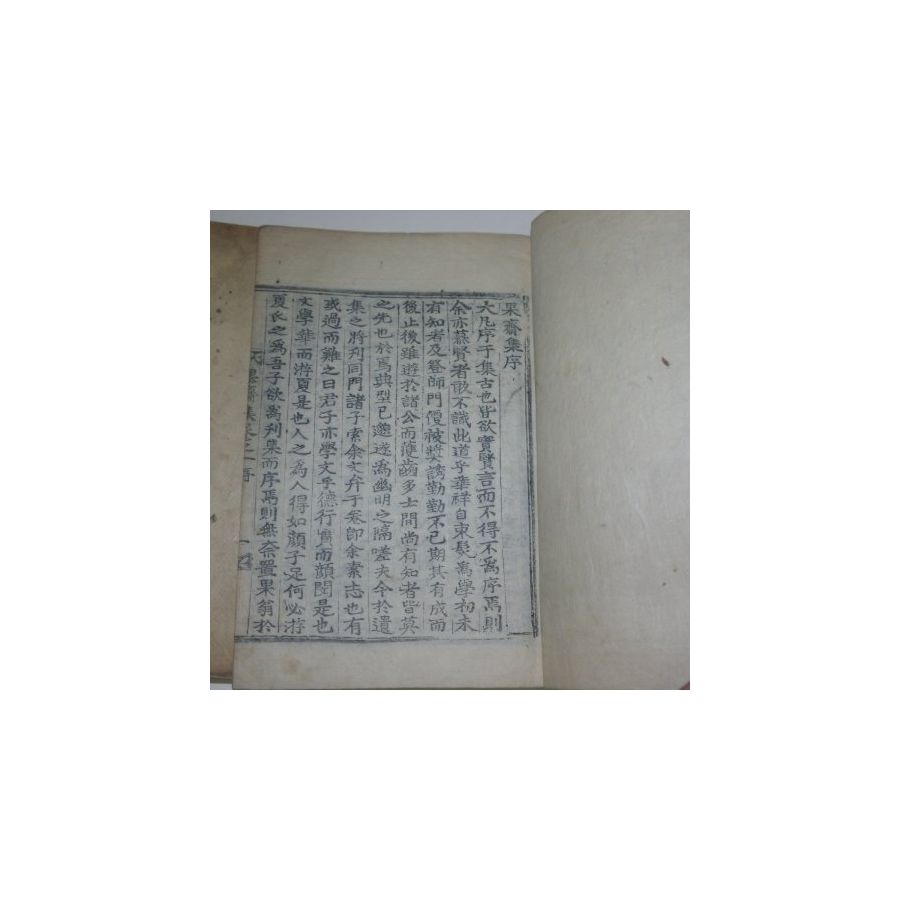 果齋集序
大凡序于集古也皆欲實賢言而不得不爲序焉則
余亦慕賢者敢不識此道乎華祥自束髮爲學初未
有知者及登師門優被奬誘勤勤不已期其有成而
後止後雖遊於諸公而薄齒多士間尚有知者皆莫
之先也於焉典型已邈遂爲幽明之隔嗟夫今於遺
集之將刊同門諸子索余文弁于卷即余素志也有
或過而難之曰君子亦學文乎德行實而顔閔是也
文學華而游夏是也人之爲人得如顔子足何必游
夏氏之爲吾子欲爲刋集而序焉則無奈置果翁於
果齋集卷之一 序 一